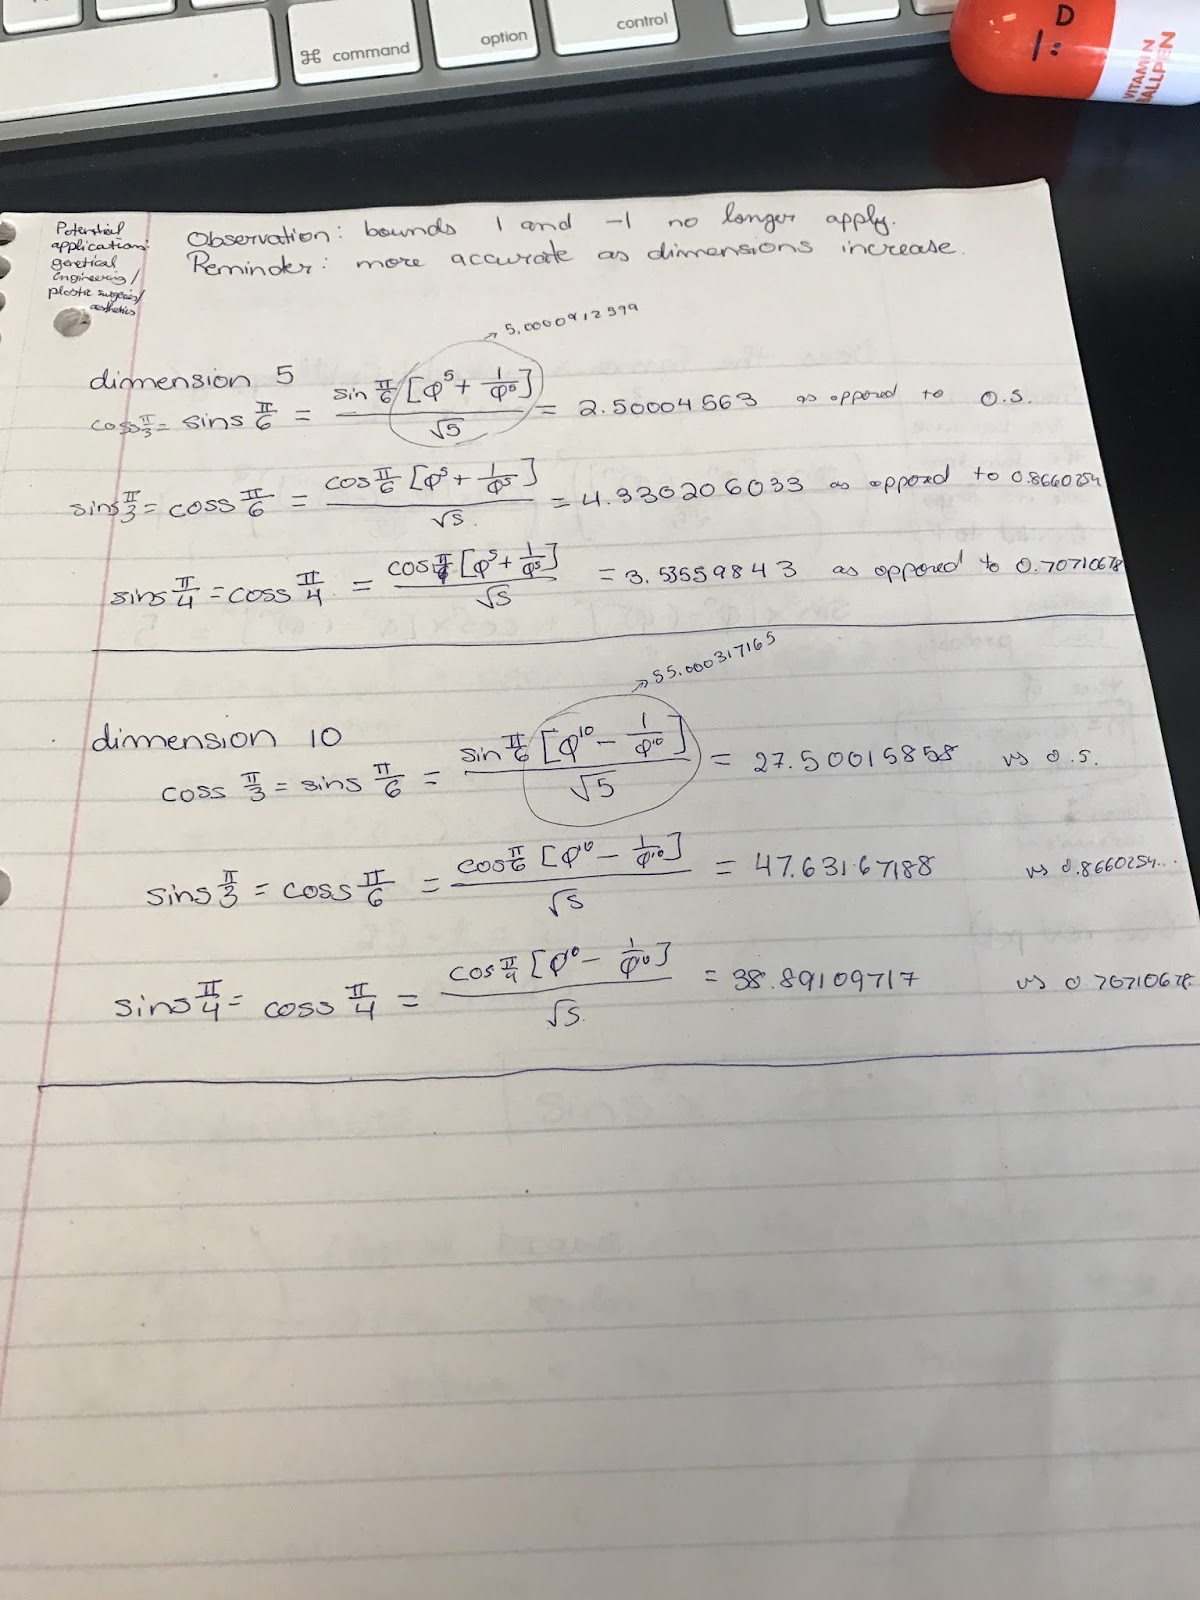 ⌘ command
option
control
D
1:
VITAMIN
BALLPEN
Potential
application:
genetical
engineering/
plastic surgeries/
aesthetics
Observation: bounds 1 and -1 no longer apply.
Reminder: more accurate as dimensions increase.
→ 5.0000912599
dimension 5
cos5 π/3 = sin5 π/6 = sin π/6 [φ^5 + 1/φ^5] / √5 = 2.50004563 as opposed to 0.5.
sin5 π/3 = cos5 π/6 = cos π/6 [φ^5 + 1/φ^5] / √5 = 4.330206033 as opposed to 0.8660254
sin5 π/4 = cos5 π/4 = cos π/4 [φ^5 + 1/φ^5] / √5 = 3.53559843 as opposed to 0.70710678
→ 55.000317165
dimension 10
cos5 π/3 = sin5 π/6 = sin π/6 [φ^10 - 1/φ^10] / √5 = 27.50015858 vs 0.5.
sin5 π/3 = cos5 π/6 = cos π/6 [φ^10 - 1/φ^10] / √5 = 47.63167188 vs 0.8660254...
sin5 π/4 = cos5 π/4 = cos π/4 [φ^10 - 1/φ^10] / √5 = 38.89109717 vs 0.70710678